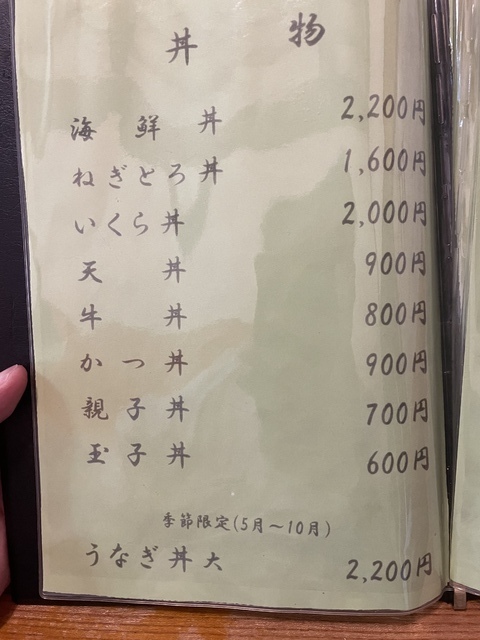 丼 物
海鮮丼 2,200円
ねぎとろ丼 1,600円
いくら丼 2,000円
天丼 900円
牛丼 800円
かつ丼 900円
親子丼 700円
玉子丼 600円
季節限定(5月～10月)
うなぎ丼大 2,200円